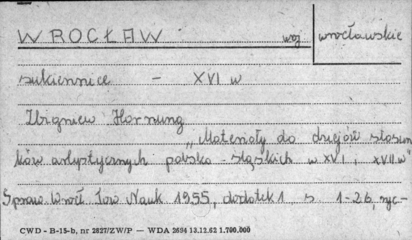 WROCŁAW woj. wrocławskie
sukiennice - XVI w
Zbigniew Hornung
„Materiały do dziejów stosun
ków artystycznych polsko-śląskich w XVI i XVII w"
Spraw. Wrocł. Tow. Nauk. 1955, dodatek 1, s 1-26, ryc-
CWD - B-15-b, nr 2827/ZW/P — WDA 2684 13.12.62 1.700.000